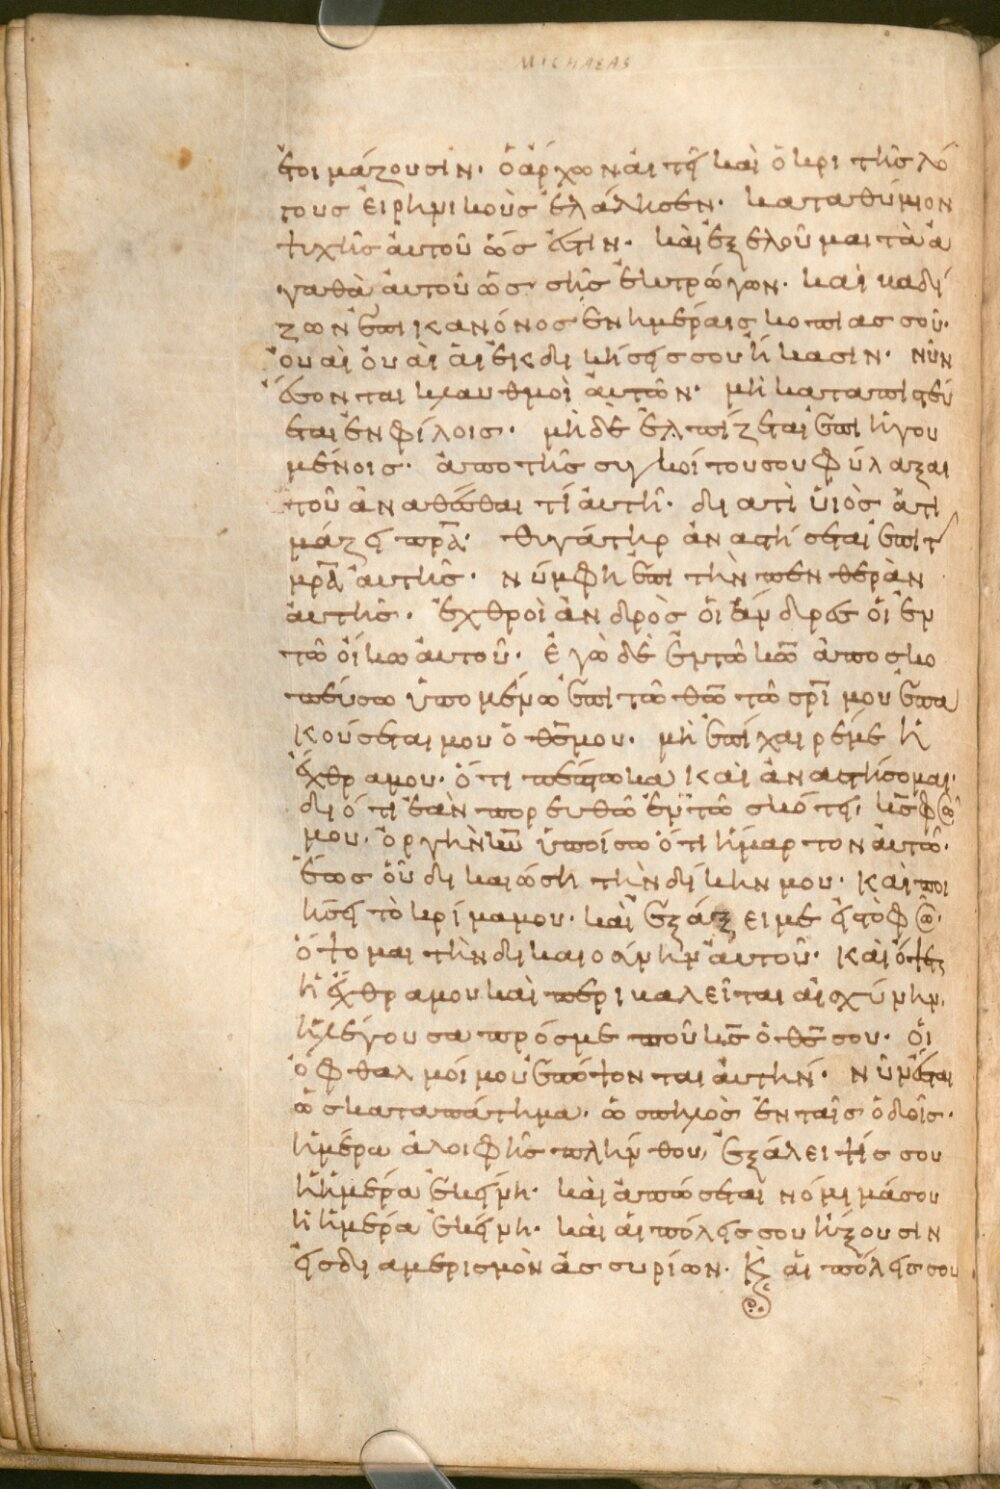 MICHAEAS
ἑτοιμάζουσιν· ὁ ἄρχων αἰτεῖ καὶ ὁ κριτὴς λό
γους εἰρηνικοὺς ἐλάλησεν· καταθύμιον
ψυχῆς αὐτοῦ ὧς ἐστιν· καὶ ἐξελοῦμαι τὰ ἀ
γαθὰ αὐτοῦ ὡς σῆς ἐκτρώγων· καὶ βαδί
ζων ἐπὶ κανόνος ἐν ἡμέραις κοπιας σου·
οὐαὶ οὐαὶ αἱ ἐκδικήσεις σου ἥκασιν· νῦν
ἔσονται κλαυθμοὶ αὐτῶν· μὴ καταπιστεύ
εται ἐν φίλοις· μὴ δὲ ἐλπίζεται ἐπὶ ἡγου
μένοις· ἀπὸ τῆς συγκοίτου σου φύλαξαι
τοῦ ἀναθέσθαι τί αὐτῆ· διατὶ υἱὸς ἀτι
μάζει πρ̅α· θυγάτηρ ἀναστήσεται ἐπὶ τ
μρ̅α αὐτῆς· νύμφη ἐπὶ τὴν πενθερὰν
αὐτῆς· ἐχθροὶ ἀνδρὸς οἱ ἄνδρες οἱ ἐν
τῶ οἴκω αὐτοῦ· ἐγὼ δὲ ἐν τῶ κ̅ω ἀποσκο
πεύσω ὑπομένω ἐπὶ τῶ θ̅ω τῶ σρ̅ι μου ἐπα
κούσεται μου ὁ θ̅ς μου· μὴ ἐπίχαιρέ με ἡ
ἔχθρα μου· ὅτι πέπτωκα καὶ ἀναστήσομαι·
διότι ἐὰν πορευθῶ ἐν τῶ σκότει, κ̅ς φῶς
μου· ὀργὴν κ̅υ ὑποίσω ὅτι ἥμαρτον αὐτῶ·
ἕως οὗ δικαιώση τὴν δίκην μου· καὶ ποι
ήσει τὸ κρίμα μου· καὶ ἐξάξει με εἰς τὸ φῶς·
ὄψομαι τὴν δικαιοσύνην αὐτοῦ· καὶ ὄψετ
ἡ ἔχθρα μου καὶ περικαλεῖται αἰσχύνην,
ἡ λέγουσα πρός με ποῦ κ̅ς ὁ θ̅ς σου· οἱ
ὀφθαλμοί μου ἐπόψονται αὐτήν· νῦν ἔσται
ὡς καταπάτημα· ὡς πηλὸς ἐν ταῖς ὁδοῖς·
ἡμέρα ἀλοιφῆς πλήνθου, ἐξάλειψίς σου
ἡ ἡμέρα ἐκείνη· καὶ ἀπώσεται νόμιμά σου
ἡ ἡμέρα ἐκείνη· καὶ αἱ πόλεις σου ἥξουσιν
εἰς διαμερισμὸν ἀσσυρίων· Κ αἱ πόλεις σου